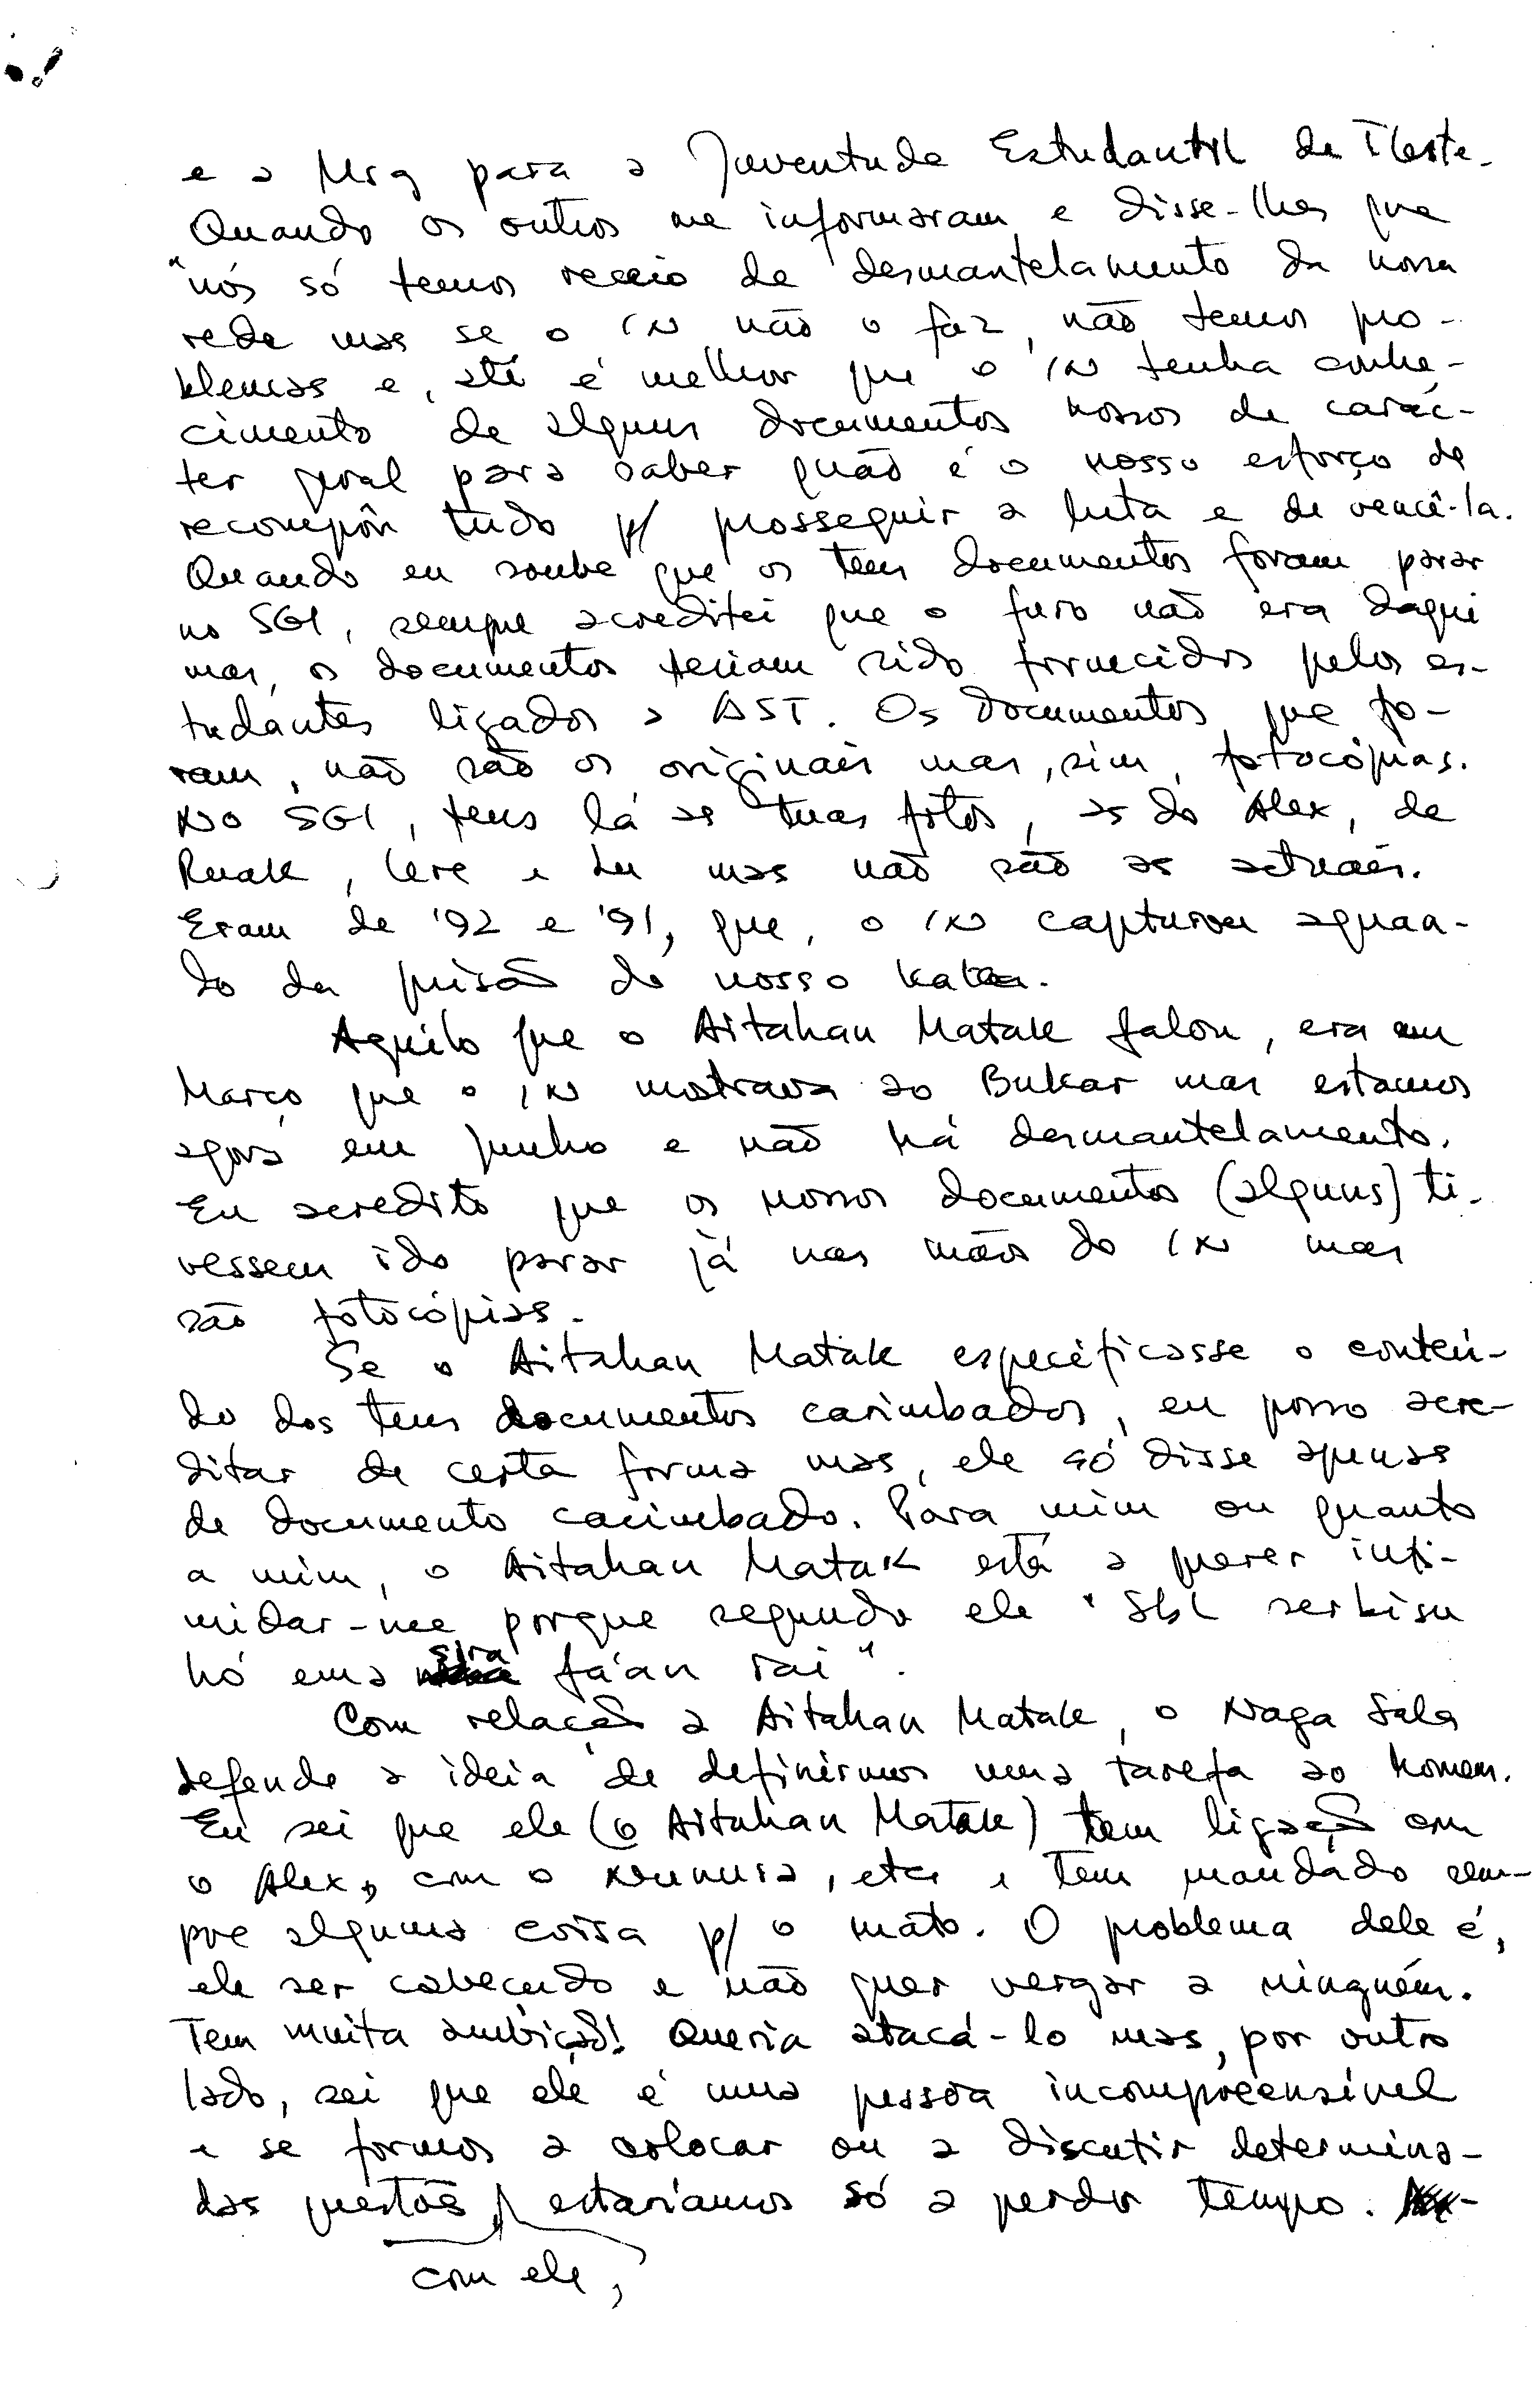 e a Msg para a Juventude Estudantil de TLeste.
Quando os outros me informaram, e disse-lhes que
"nós só temos receio de desmantelamento da nossa
rede mas se o IN não o faz, não temos pro-
blemas e, até é melhor que o IN tenha conhe-
cimento de alguns documentos nossos de carác-
ter geral para saber quão é o nosso esforço de
recompôr tudo p/ prosseguir a luta e de vencê-la.
Quando eu soube que os teus documentos foram parar
no SGI, sempre acreditei que o furo não era daqui
mas, os documentos teriam sido fornecidos pelos es-
tudantes ligados a AST. Os documentos que fo-
ram, não são os originais mas, sim, fotocópias.
No SGI, tens lá as tuas fotos, as do Alex, de
Ruak, Lere e Lu mas não são as actuais.
Eram de '92 e '91, que, o IN capturou aquan-
do da prisão do nosso
Aquilo que o Aitahan Matak falou, era em
Março que o IN mostrava ao Bukar mas estamos
agora em Junho e não há desmantelamento.
Eu acredito que os nossos documentos (alguns) ti-
vessem ido parar já nas mãos do IN mas
são fotocópias.
Se o Aitahan Matak especificasse o conteú-
do dos teus documentos carimbados, eu posso acre-
ditar de certa forma mas, ele só disse apenas
de documento carimbado. Para mim ou quanto
a mim, o Aitahan Matak está a querer inti-
midar-me porque segundo ele "Sbl serbisu
hó ema sira fa'an rai".
Com relação a Aitahan Matak, o Naga Sala
defende a ideia de definirmos uma tarefa ao homem.
Eu sei que ele (o Aitahan Matak) tem ligação com
o Alex, com o etc e tem mandado sem-
pre alguma coisa p/ o mato. O problema dele é,
ele ser cabeçudo e não quer vergar a ninguém.
Tem muita ambição! Queria atacá-lo mas, por outro
lado, sei que ele é uma pessoa incompreensível
e se formos a colocar ou a discutir determina-
das questões com ele, estaríamos só a perder tempo.